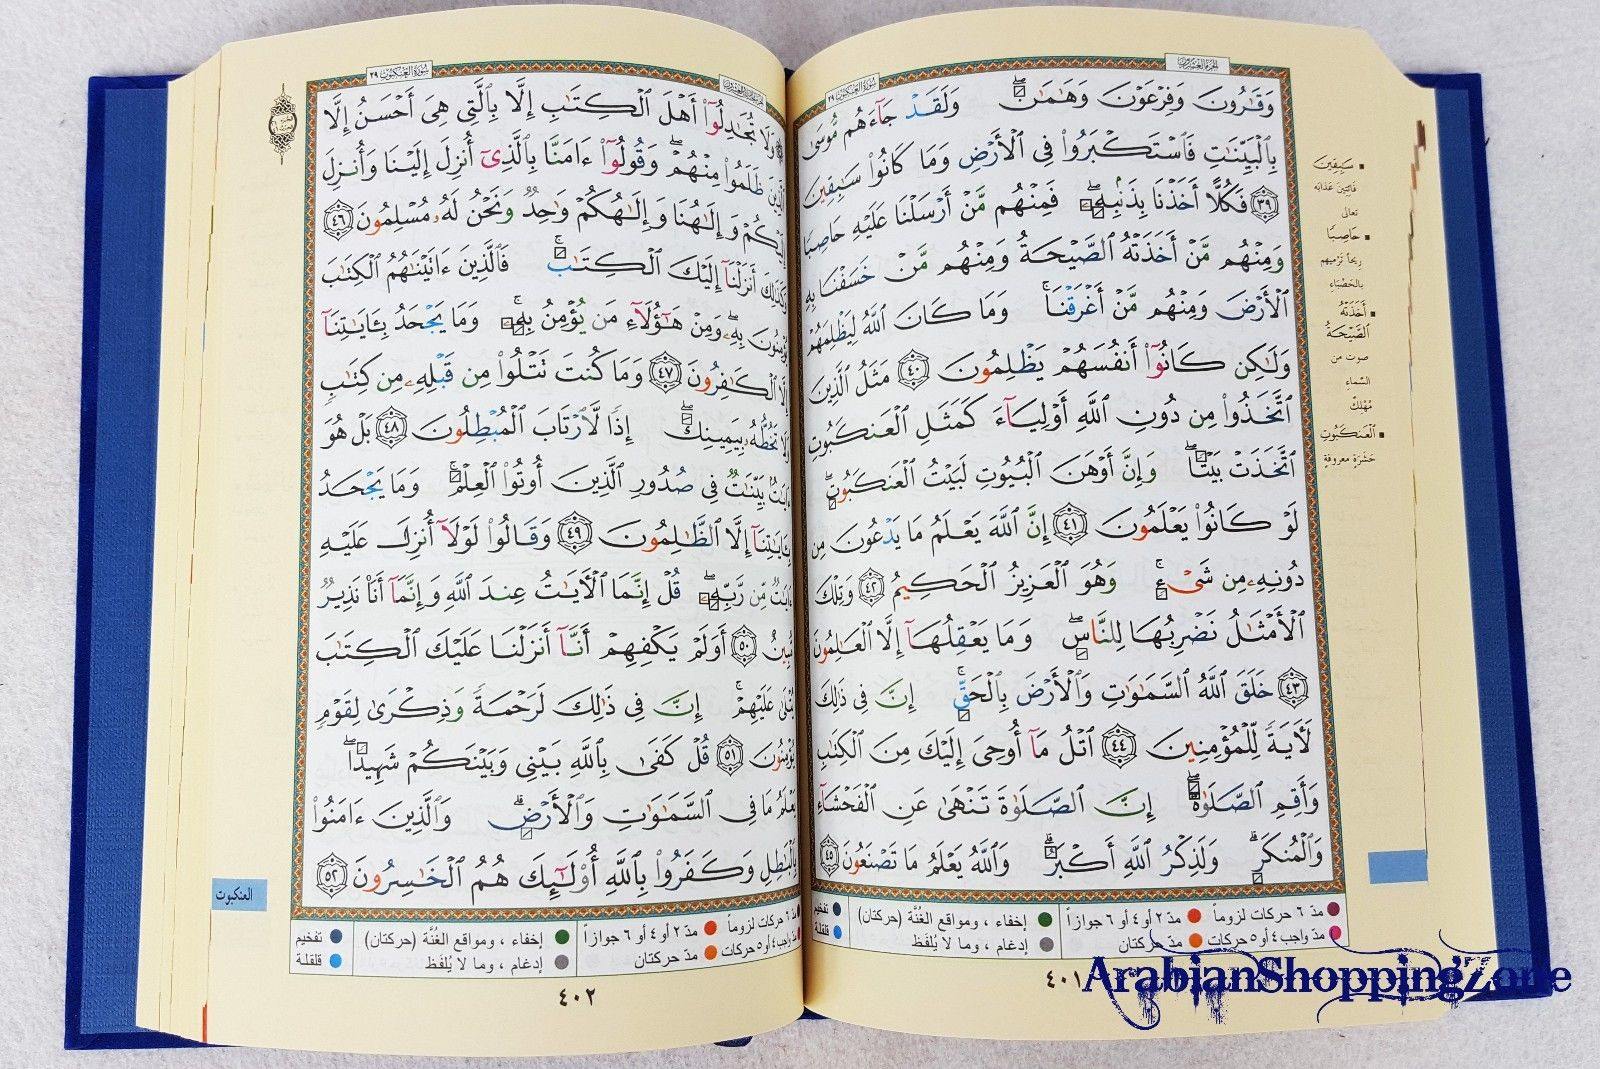 سورة العنكبوت ٢٩
الجزء العشرون
وَقَٰرُونَ وَفِرْعَوْنَ وَهَٰمَٰنَۖ وَلَقَدْ جَآءَهُم مُّوسَىٰ
بِٱلْبَيِّنَٰتِ فَٱسْتَكْبَرُوا۟ فِى ٱلْأَرْضِ وَمَا كَانُوا۟ سَٰبِقِينَ
٣٩ فَكُلًّا أَخَذْنَا بِذَنۢبِهِۦۖ فَمِنْهُم مَّنْ أَرْسَلْنَا عَلَيْهِ حَاصِبًا
وَمِنْهُم مَّنْ أَخَذَتْهُ ٱلصَّيْحَةُ وَمِنْهُم مَّنْ خَسَفْنَا بِهِ
ٱلْأَرْضَ وَمِنْهُم مَّنْ أَغْرَقْنَاۚ وَمَا كَانَ ٱللَّهُ لِيَظْلِمَهُمْ
وَلَٰكِن كَانُوٓا۟ أَنفُسَهُمْ يَظْلِمُونَ ٤٠ مَثَلُ ٱلَّذِينَ
ٱتَّخَذُوا۟ مِن دُونِ ٱللَّهِ أَوْلِيَآءَ كَمَثَلِ ٱلْعَنكَبُوتِ
ٱتَّخَذَتْ بَيْتًاۖ وَإِنَّ أَوْهَنَ ٱلْبُيُوتِ لَبَيْتُ ٱلْعَنكَبُوتِۖ
لَوْ كَانُوا۟ يَعْلَمُونَ ٤١ إِنَّ ٱللَّهَ يَعْلَمُ مَا يَدْعُونَ مِن
دُونِهِۦ مِن شَىْءٍۚ وَهُوَ ٱلْعَزِيزُ ٱلْحَكِيمُ ٤٢ وَتِلْكَ
ٱلْأَمْثَٰلُ نَضْرِبُهَا لِلنَّاسِۖ وَمَا يَعْقِلُهَآ إِلَّا ٱلْعَٰلِمُونَ
٤٣ خَلَقَ ٱللَّهُ ٱلسَّمَٰوَٰتِ وَٱلْأَرْضَ بِٱلْحَقِّۚ إِنَّ فِى ذَٰلِكَ
لَءَايَةً لِّلْمُؤْمِنِينَ ٤٤ ٱتْلُ مَآ أُوحِىَ إِلَيْكَ مِنَ ٱلْكِتَٰبِ
وَأَقِمِ ٱلصَّلَوٰةَۖ إِنَّ ٱلصَّلَوٰةَ تَنْهَىٰ عَنِ ٱلْفَحْشَآءِ
وَٱلْمُنكَرِۗ وَلَذِكْرُ ٱللَّهِ أَكْبَرُۗ وَٱللَّهُ يَعْلَمُ مَا تَصْنَعُونَ ٤٥
سَٰبِقِينَ
فائتين عذابه
تعالى
حَاصِبًا
ريحاً ترميهم
بالحصباء
أَخَذَتْهُ
ٱلصَّيْحَةُ
صوت من
السّماء
مُهْلِك
ٱلْعَنكَبُوتِ
حشرة معروفة
مدّ ٦ حركات لزوماً مدّ ٢ أو ٤ أو ٦ جوازاً إخفاء ، ومواقع الغُنَّة (حركتان) تفخيم
مدّ واجب ٤ أو ٥ حركات مدّ حركتان إدغام ، وما لا يُلفَظ قلقلة
٤٠١
سورة العنكبوت ٢٩
وَلَا تُجَٰدِلُوٓا۟ أَهْلَ ٱلْكِتَٰبِ إِلَّا بِٱلَّتِى هِىَ أَحْسَنُ إِلَّا
ٱلَّذِينَ ظَلَمُوا۟ مِنْهُمْۖ وَقُولُوٓا۟ ءَامَنَّا بِٱلَّذِىٓ أُنزِلَ إِلَيْنَا وَأُنزِلَ
إِلَيْكُمْ وَإِلَٰهُنَا وَإِلَٰهُكُمْ وَٰحِدٌ وَنَحْنُ لَهُۥ مُسْلِمُونَ ٤٦
وَكَذَٰلِكَ أَنزَلْنَآ إِلَيْكَ ٱلْكِتَٰبَۚ فَٱلَّذِينَ ءَاتَيْنَٰهُمُ ٱلْكِتَٰبَ
يُؤْمِنُونَ بِهِۦۖ وَمِنْ هَٰٓؤُلَآءِ مَن يُؤْمِنُ بِهِۦۚ وَمَا يَجْحَدُ بِـَٔايَٰتِنَآ
إِلَّا ٱلْكَٰفِرُونَ ٤٧ وَمَا كُنتَ تَتْلُوا۟ مِن قَبْلِهِۦ مِن كِتَٰبٍ
وَلَا تَخُطُّهُۥ بِيَمِينِكَۖ إِذًا لَّٱرْتَابَ ٱلْمُبْطِلُونَ ٤٨ بَلْ هُوَ
ءَايَٰتٌۢ بَيِّنَٰتٌ فِى صُدُورِ ٱلَّذِينَ أُوتُوا۟ ٱلْعِلْمَۚ وَمَا يَجْحَدُ
بِـَٔايَٰتِنَآ إِلَّا ٱلظَّٰلِمُونَ ٤٩ وَقَالُوا۟ لَوْلَآ أُنزِلَ عَلَيْهِ
ءَايَٰتٌ مِّن رَّبِّهِۦۖ قُلْ إِنَّمَا ٱلْءَايَٰتُ عِندَ ٱللَّهِ وَإِنَّمَآ أَنَا۠ نَذِيرٌ
مُّبِينٌ ٥٠ أَوَلَمْ يَكْفِهِمْ أَنَّآ أَنزَلْنَا عَلَيْكَ ٱلْكِتَٰبَ
يُتْلَىٰ عَلَيْهِمْۚ إِنَّ فِى ذَٰلِكَ لَرَحْمَةً وَذِكْرَىٰ لِقَوْمٍ
يُؤْمِنُونَ ٥١ قُلْ كَفَىٰ بِٱللَّهِ بَيْنِى وَبَيْنَكُمْ شَهِيدًاۖ
يَعْلَمُ مَا فِى ٱلسَّمَٰوَٰتِ وَٱلْأَرْضِۗ وَٱلَّذِينَ ءَامَنُوا۟
بِٱلْبَٰطِلِ وَكَفَرُوا۟ بِٱللَّهِ أُو۟لَٰٓئِكَ هُمُ ٱلْخَٰسِرُونَ ٥٢
العنكبوت
مدّ ٦ حركات لزوماً مدّ ٢ أو ٤ أو ٦ جوازاً إخفاء ، ومواقع الغُنَّة (حركتان) تفخيم
مدّ واجب ٤ أو ٥ حركات مدّ حركتان إدغام ، وما لا يُلفَظ قلقلة
٤٠٢
ArabianShoppingZone